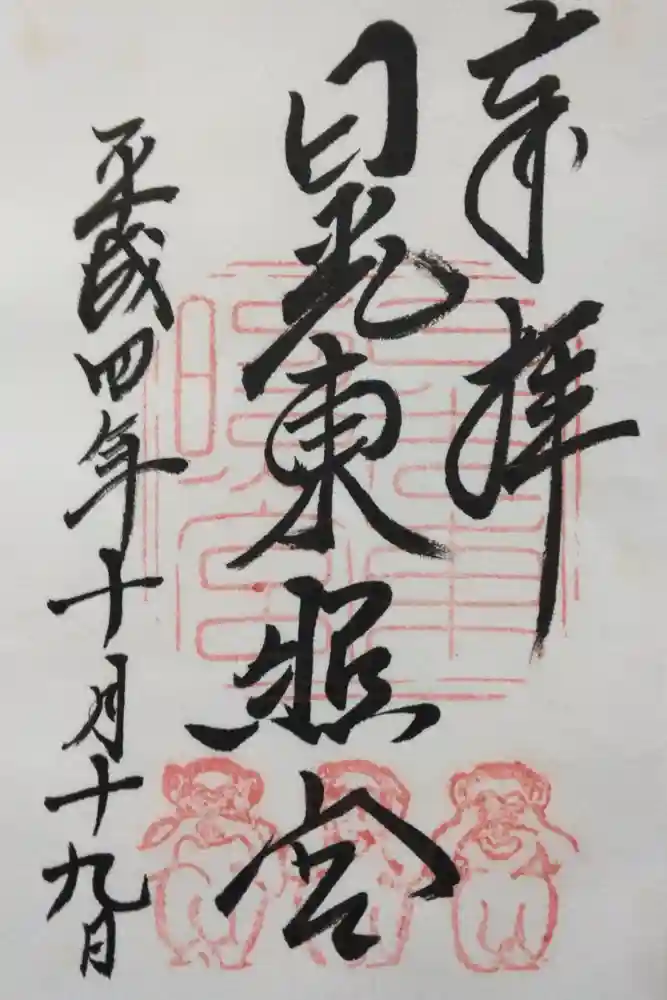 奉拝
日光東照宮
平成四年十月十九日